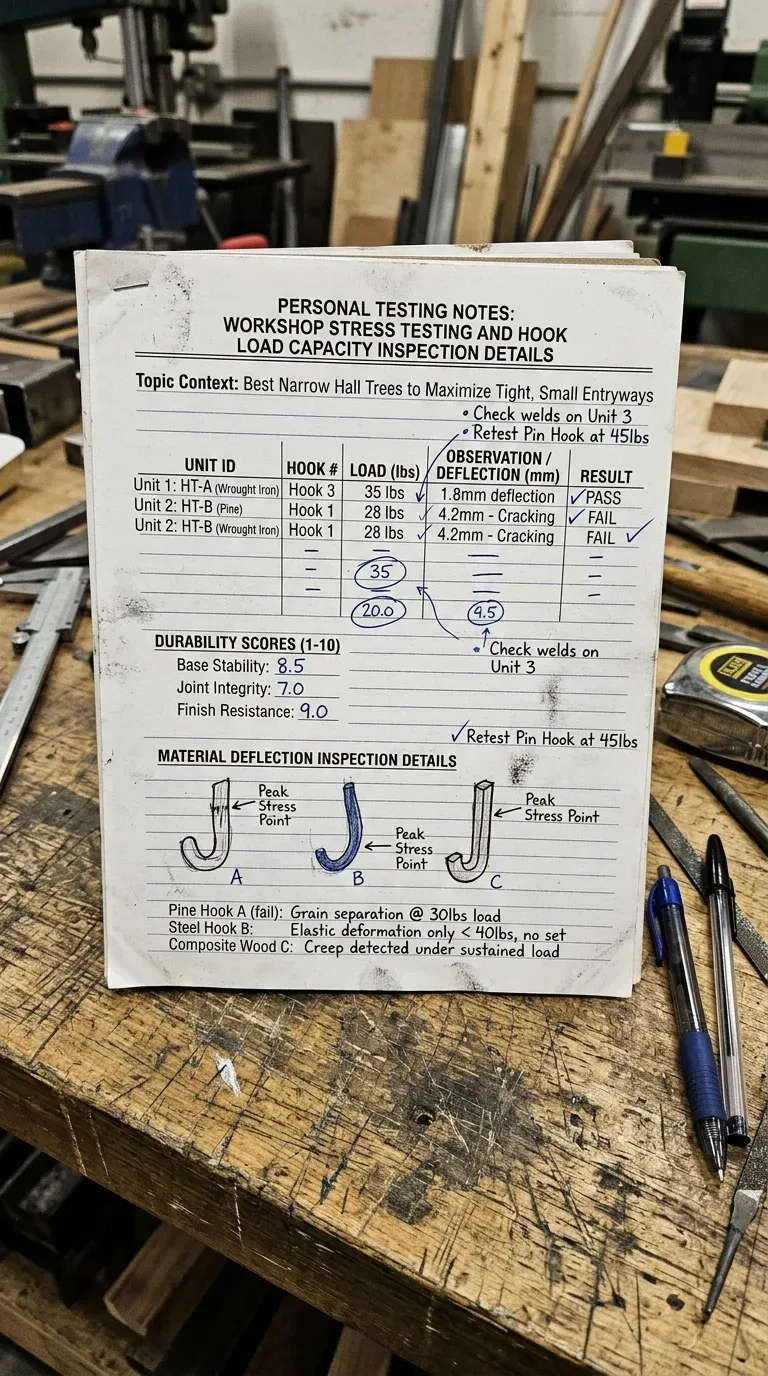 PERSONAL TESTING NOTES:
WORKSHOP STRESS TESTING AND HOOK
LOAD CAPACITY INSPECTION DETAILS
Topic Context: Best Narrow Hall Trees to Maximize Tight, Small Entryways
• Check welds on Unit 3
• Retest Pin Hook at 45lbs
UNIT ID HOOK # LOAD (lbs) OBSERVATION / DEFLECTION (mm) RESULT
Unit 1: HT-A (Wrought Iron) Hook 3 35 lbs 1.8mm deflection ✓PASS
Unit 2: HT-B (Pine) Hook 1 28 lbs ✓ 4.2mm - Cracking ✓ FAIL
Unit 2: HT-B (Wrought Iron) Hook 1 28 lbs ✓ 4.2mm - Cracking FAIL ✓
– – – –
– 35 – –
– – – –
20.0 9.5
DURABILITY SCORES (1-10)
• Check welds on
Unit 3
Base Stability: 8.5
Joint Integrity: 7.0
Finish Resistance: 9.0
✓Retest Pin Hook at 45lbs
MATERIAL DEFLECTION INSPECTION DETAILS
Peak
Stress
Point
A
Peak
Stress
Point
B
Peak
Stress Point
C
Pine Hook A (fail): Grain separation @ 30lbs load
Steel Hook B: Elastic deformation only < 40lbs, no set
Composite Wood C: Creep detected under sustained load